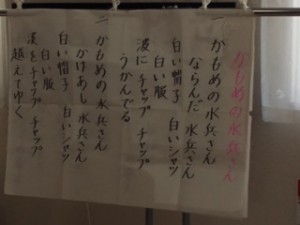 かもめの水兵さん
一 かもめの水兵さん
ならんだ 水兵さん
白い帽子 白いシャツ
白い服
波に チャップ チャップ
うかんでる
二 かもめの水兵さん
かけあし 水兵さん
白い帽子 白いシャツ
白い服
波をチャップ チャップ
越えてゆく